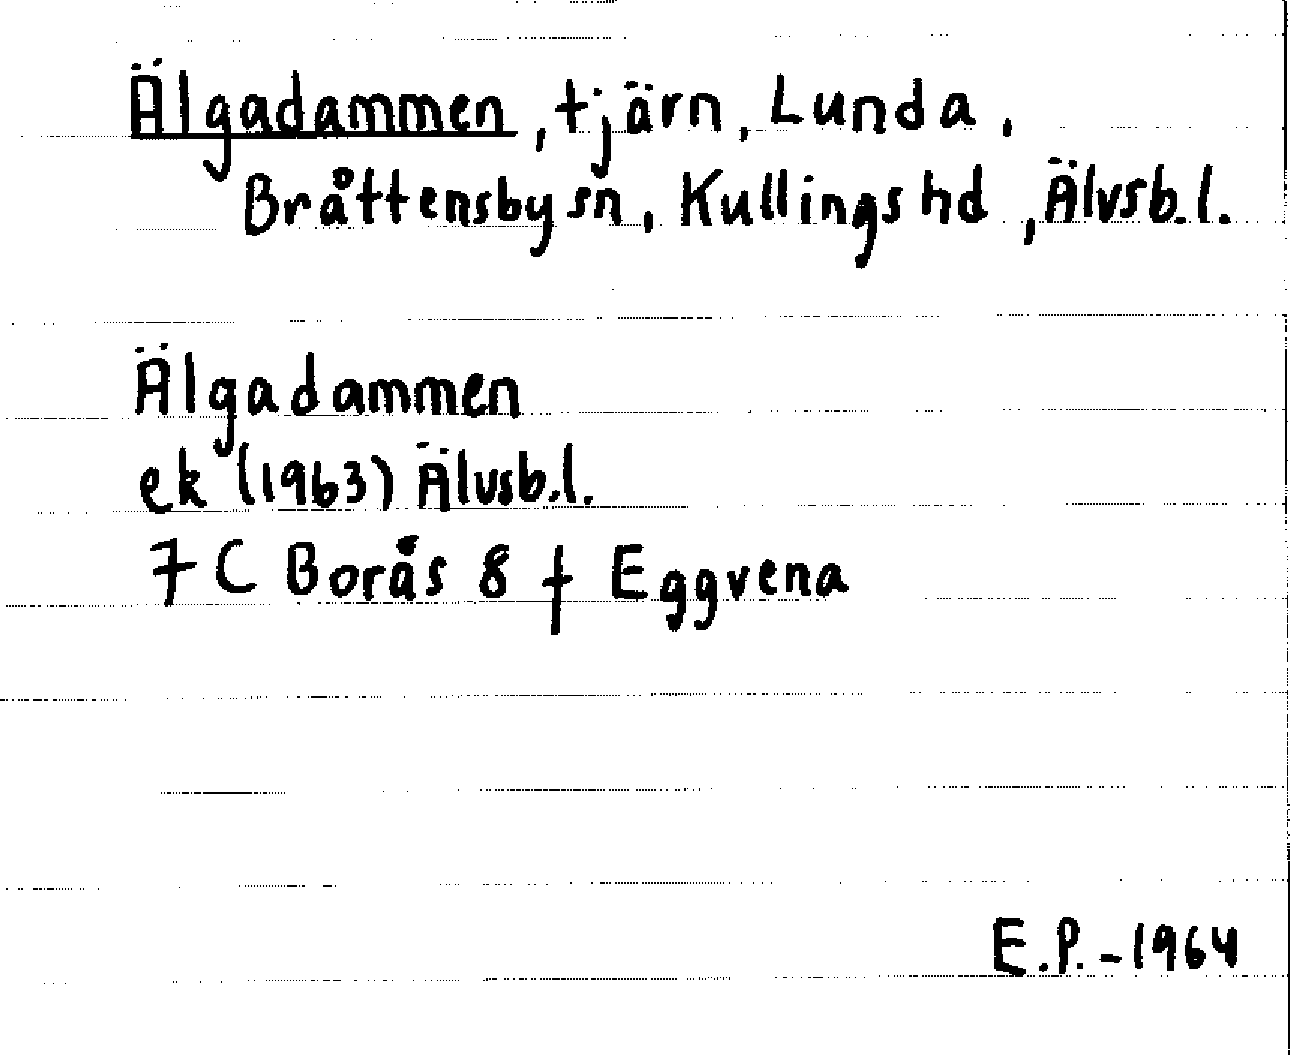 Älgadammen, tjärn, Lunda,
Bråttensby sn, Kullings hd, Älvsb.l.
Älgadammen
ek (1963) Älvsb.l.
7 C Borås 8 f Eggvena
E.P. - 1964